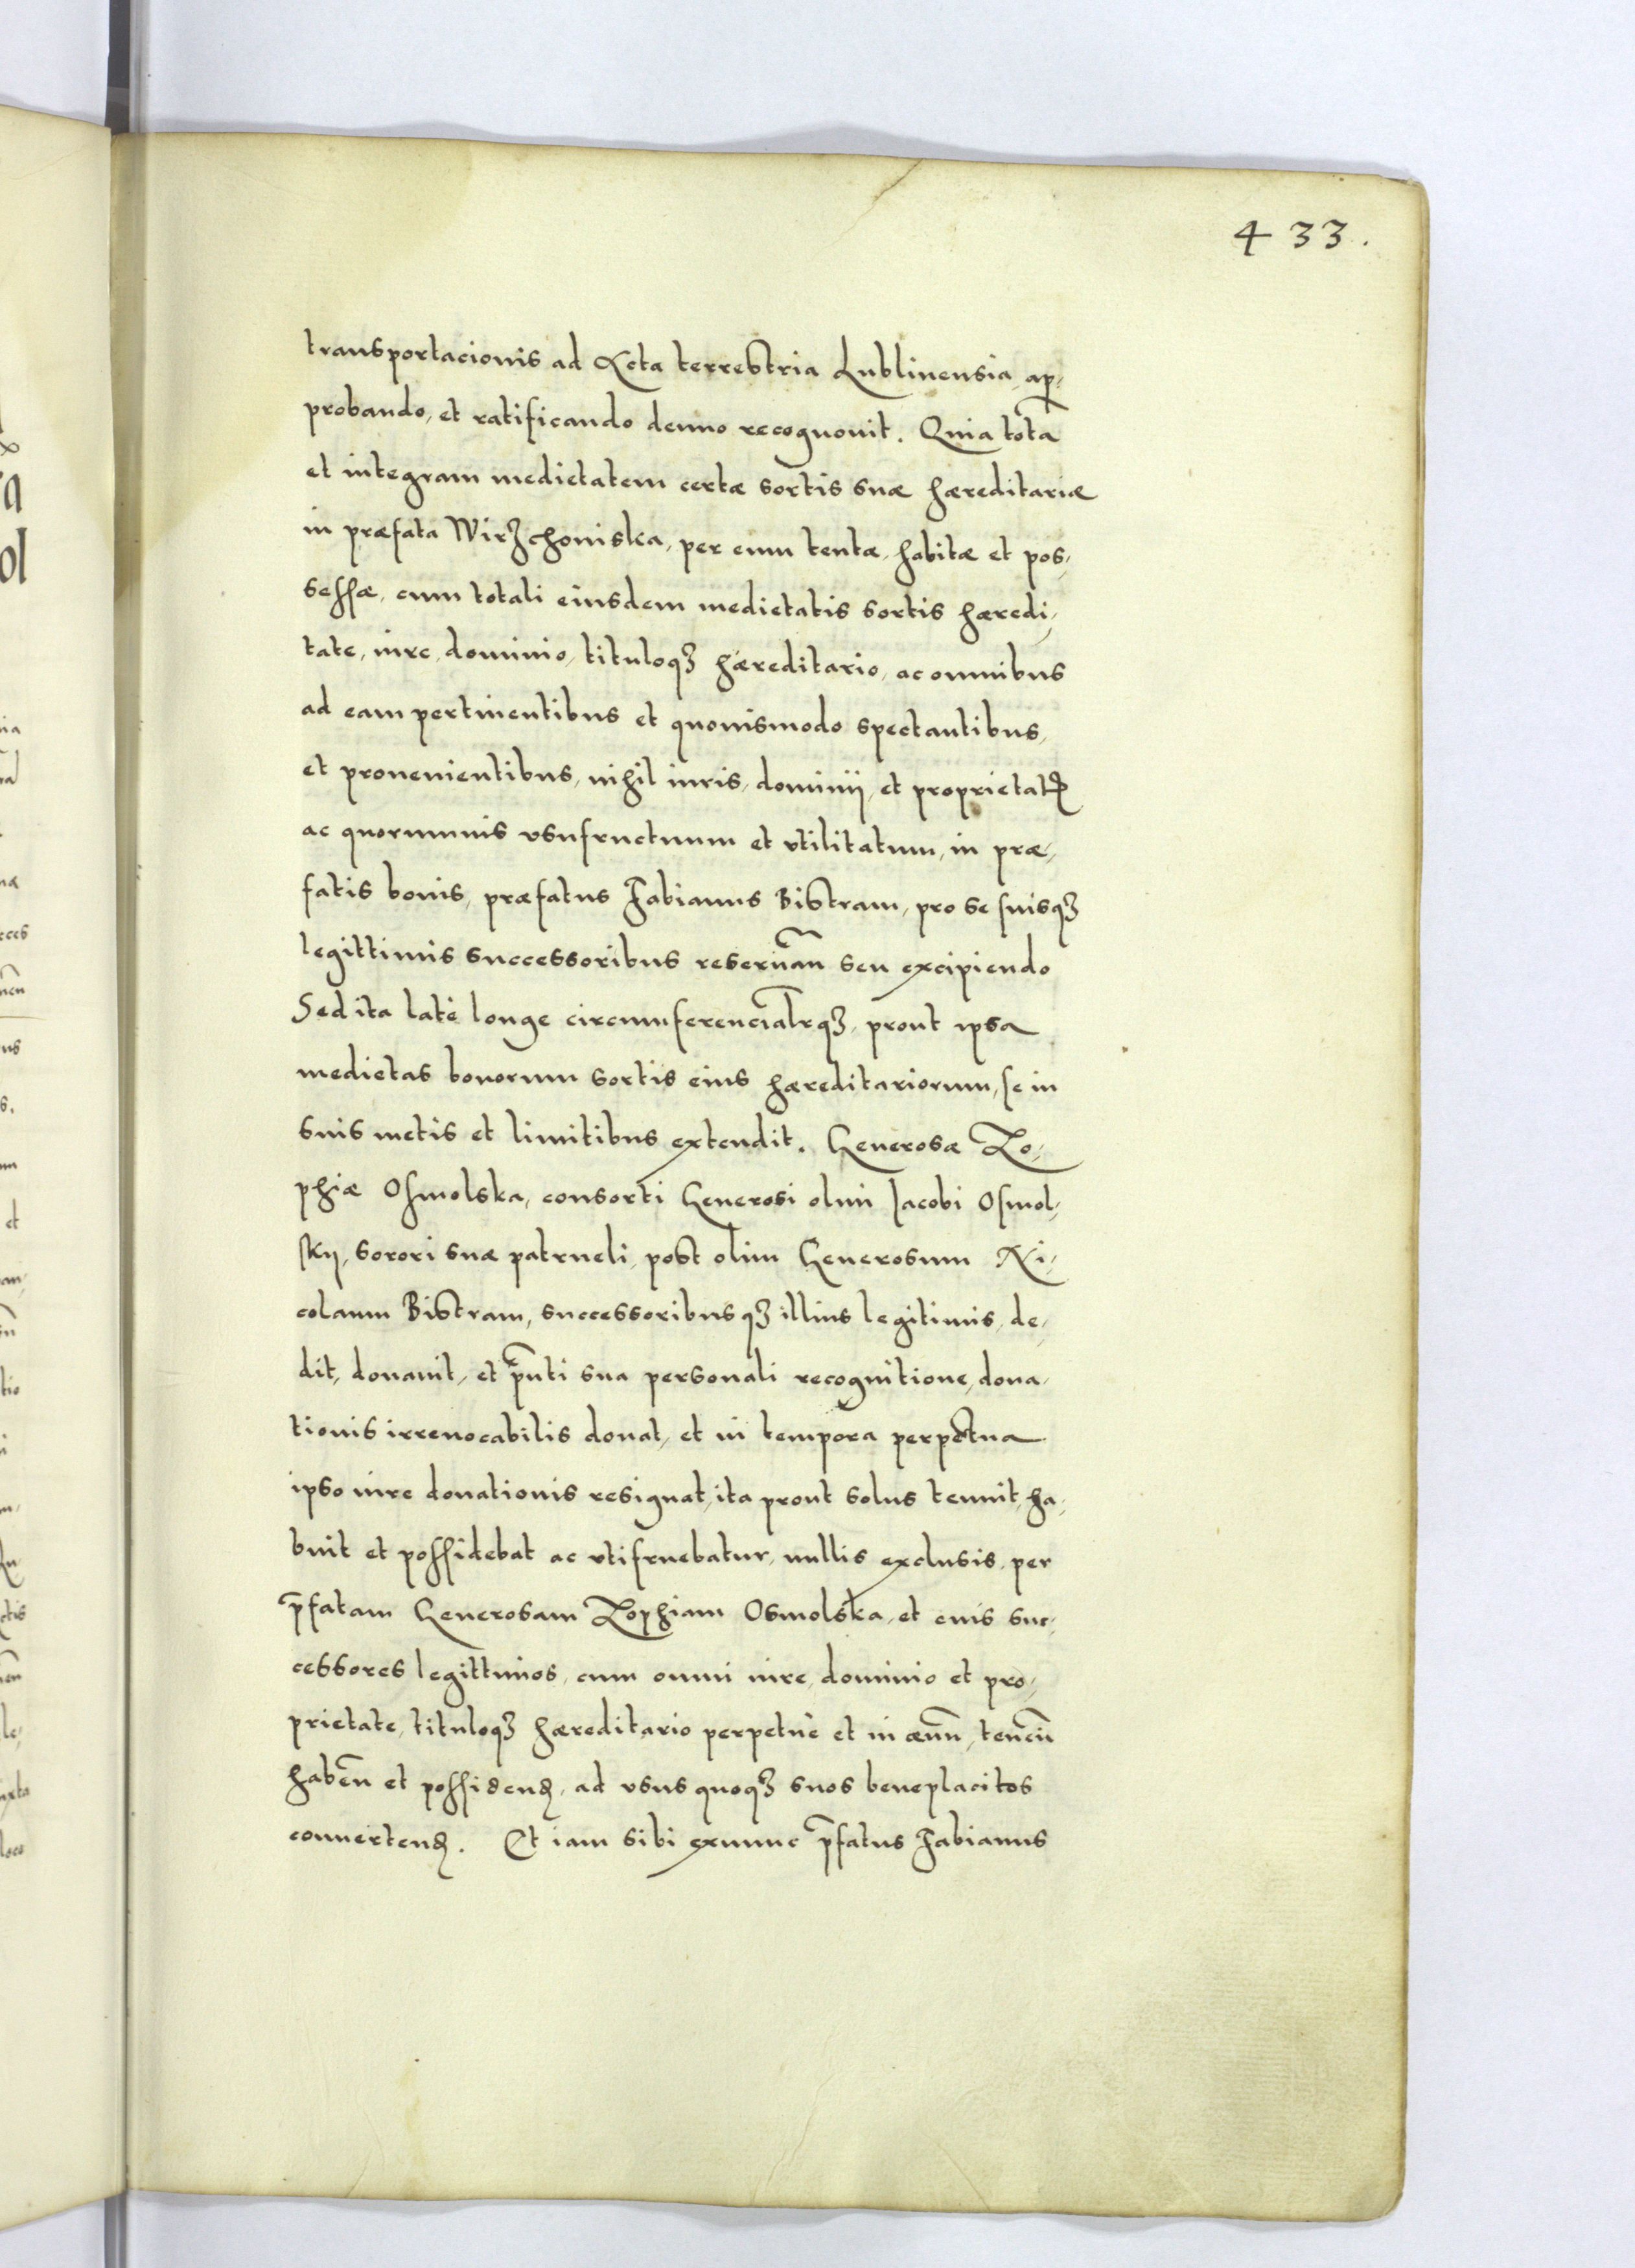 433.
transportacionis ad Acta terrestria Lublinensia, ap-
probando, et ratificando denuo recognouit. Quia totã
et integram medietatem certæ sortis suæ hæreditariæ
in præfata Wirzchoniska, per eum tentæ, habitæ et pos-
sessæ, cum totali eiusdem medietatis sortis hæredi-
tate, iure, dominio, tituloqȝ hæreditario, ac omnibus
ad eam pertinentibus et quouismodo spectantibus,
et prouenientibus, nihil iuris, dominij, et proprietatꝭ
ac quorumuis vsufructuum et vtilitatum, in præ-
fatis bonis, præfatus Fabianus Bistram, pro se suisqȝ
legittimis successoribus reseruãn seu excipiendo
Sed ita latè longe circumferencialr̃qȝ, prout ipsa
medietas bonorum sortis eius hæreditariorum, se in
suis metis et limitibus extendit. Generosæ Zo-
phiæ Osmolska, consorti Generosi olim Jacobi Osmol-
skij, sorori suæ patrueli, post olim Generosum Ni-
colaum Bistram, successoribusqȝ illius legitimis, de-
dit, donauit, et p̃nti sua personali recognitione, dona-
tionis irreuocabilis donat, et in tempora perpetua
ipso iure donationis resignat, ita prout solus tenuit, ha-
buit et possidebat ac vtifruebatur, nullis exclusis, per
p̃fatam Generosam Zophiam Osmolska, et euis suc-
cessores legittimos, cum omni iure, dominio et pro-
prietate, tituloqȝ hæreditario perpetuè et in æuũ, teneñ
habeñ et possidenḍ, ad vsus quoqȝ suos beneplacitos
conuertenḍ. Et iam sibi exnunc p̃fatus Fabianus